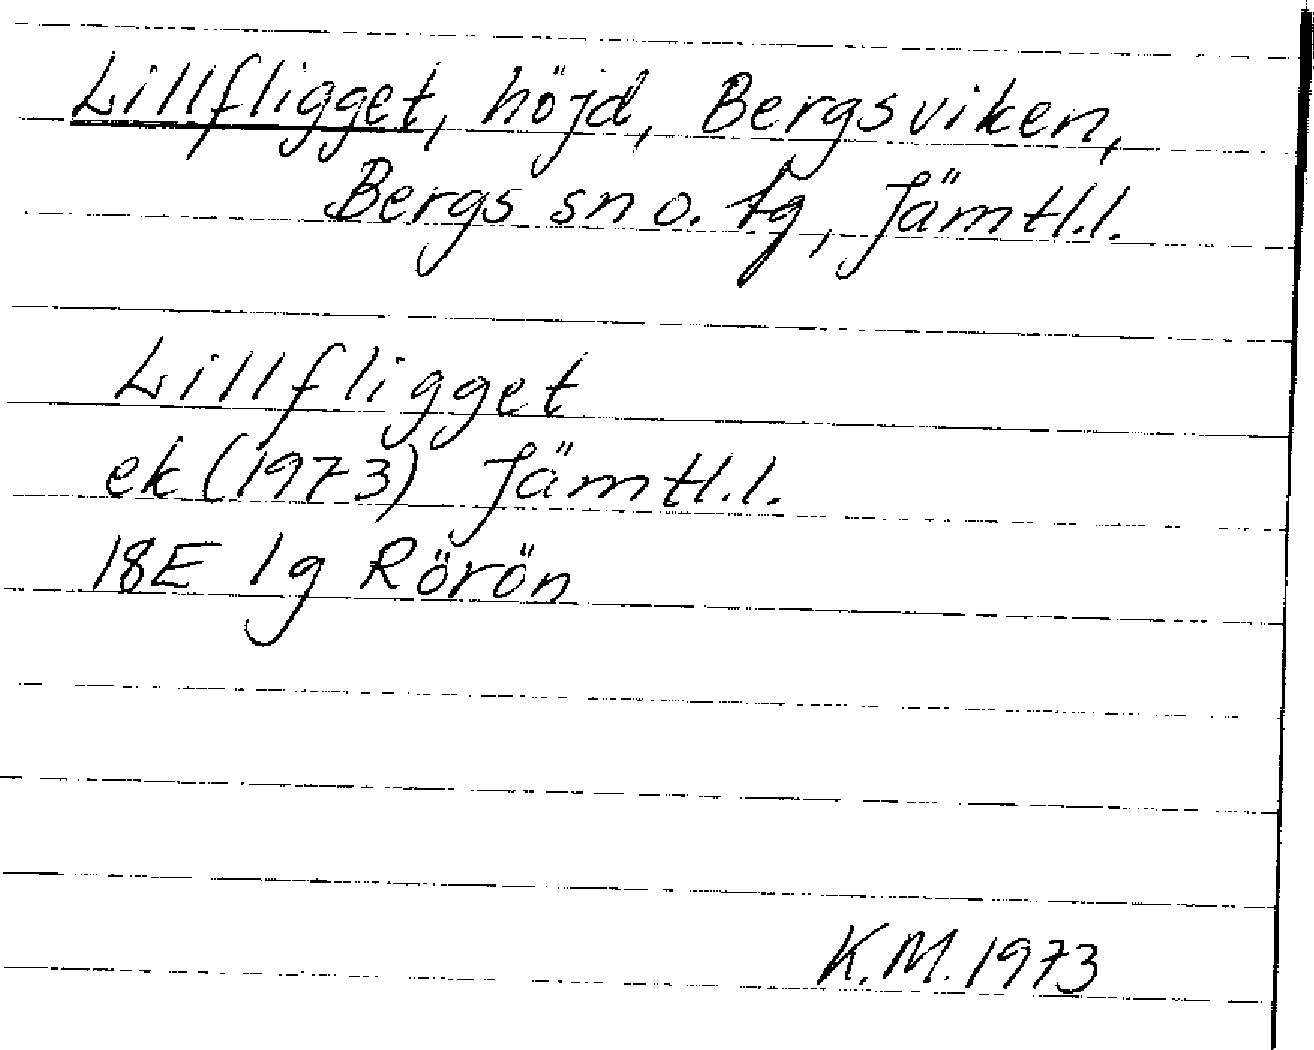 Lillfligget, höjd, Bergsviken,
Bergs sn o. tg, Jämtl.l.
Lillfligget
ek (1973) Jämtl.l.
18E 1g Rörön
K.M. 1973